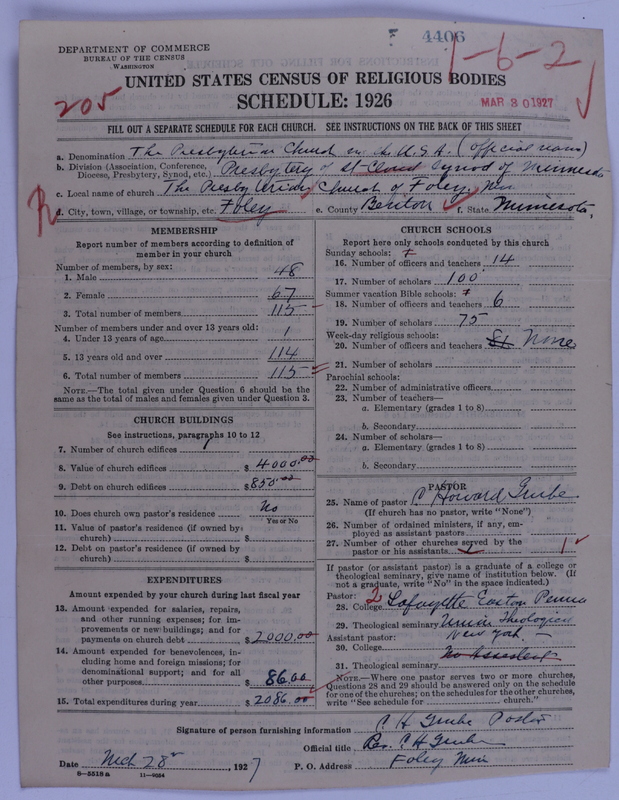 4406
1-6-2
DEPARTMENT OF COMMERCE
BUREAU OF THE CENSUS
WASHINGTON
UNITED STATES CENSUS OF RELIGIOUS BODIES
205
SCHEDULE: 1926
MAR 30 1927
FILL OUT A SEPARATE SCHEDULE FOR EACH CHURCH. SEE INSTRUCTIONS ON THE BACK OF THIS SHEET
a. Denomination The Presbyterian Church in the U.S.A. (official name)
b. Division (Association, Conference, Diocese, Presbytery, Synod, etc.) Presbytery of St Cloud Synod of Minnesota
c. Local name of church The Presbyterian Church of Foley, Minn
R
d. City, town, village, or township, etc. Foley e. County Benton f. State Minnesota,
MEMBERSHIP
Report number of members according to definition of
member in your church
Number of members, by sex:
1. Male 48
2. Female 67
3. Total number of members 115
Number of members under and over 13 years old:
4. Under 13 years of age 1
5. 13 years old and over 114
6. Total number of members 115
NOTE.—The total given under Question 6 should be
same as the total of males and females given under Question 3.
CHURCH BUILDINGS
See instructions, paragraphs 10 to 12
7. Number of church edifices 1
8. Value of church edifices $ 4000.00
9. Debt on church edifices $ 850.00
10. Does church own pastor's residence? No
Yes or No
11. Value of pastor's residence (if owned by
church) $
12. Debt on pastor's residence (if owned by
church) $
EXPENDITURES
Amount expended by your church during last fiscal year
13. Amount expended for salaries, repairs,
and other running expenses; for im-
provements or new buildings; and for
payments on church debt $ 2000.00
14. Amount expended for benevolences, in-
cluding home and foreign missions; for
denominational support; and for all
other purposes $ 86.00
15. Total expenditures during year $ 2086.00
CHURCH SCHOOLS
Report here only schools conducted by this church
Sunday schools:
16. Number of officers and teachers 14
17. Number of scholars 100
Summer vacation Bible schools:
18. Number of officers and teachers 6
19. Number of scholars 75
Week-day religious schools:
20. Number of officers and teachers None
21. Number of scholars
Parochial schools:
22. Number of administrative officers
23. Number of teachers—
a. Elementary (grades 1 to 8)
b. Secondary
24. Number of scholars—
a. Elementary (grades 1 to 8)
b. Secondary
PASTOR
25. Name of pastor C Howard Grube
(If church has no pastor, write "None")
26. Number of ordained ministers, if any, em-
ployed as assistant pastors
27. Number of other churches served by the
pastor or his assistants 1
If pastor (or assistant pastor) is a graduate of a college or
theological seminary, give name of institution below. (If
not a graduate, write "No" in the space indicated.)
Pastor: 2
28. College Lafayette Easton Penna
29. Theological seminary Union Theological
New York
Assistant pastor:
30. College
No Assistant
31. Theological seminary
NOTE.—Where one pastor serves two or more churches,
Questions 28 and 29 should be answered only on the schedule
for one of the churches; on the schedules for the other churches,
write "See schedule for church."
Signature of person furnishing information C H Grube Pastor
Official title Rev. C H Grube
Date Mch 28, 1927 P. O. Address Foley Minn
6-5518a 11-9054